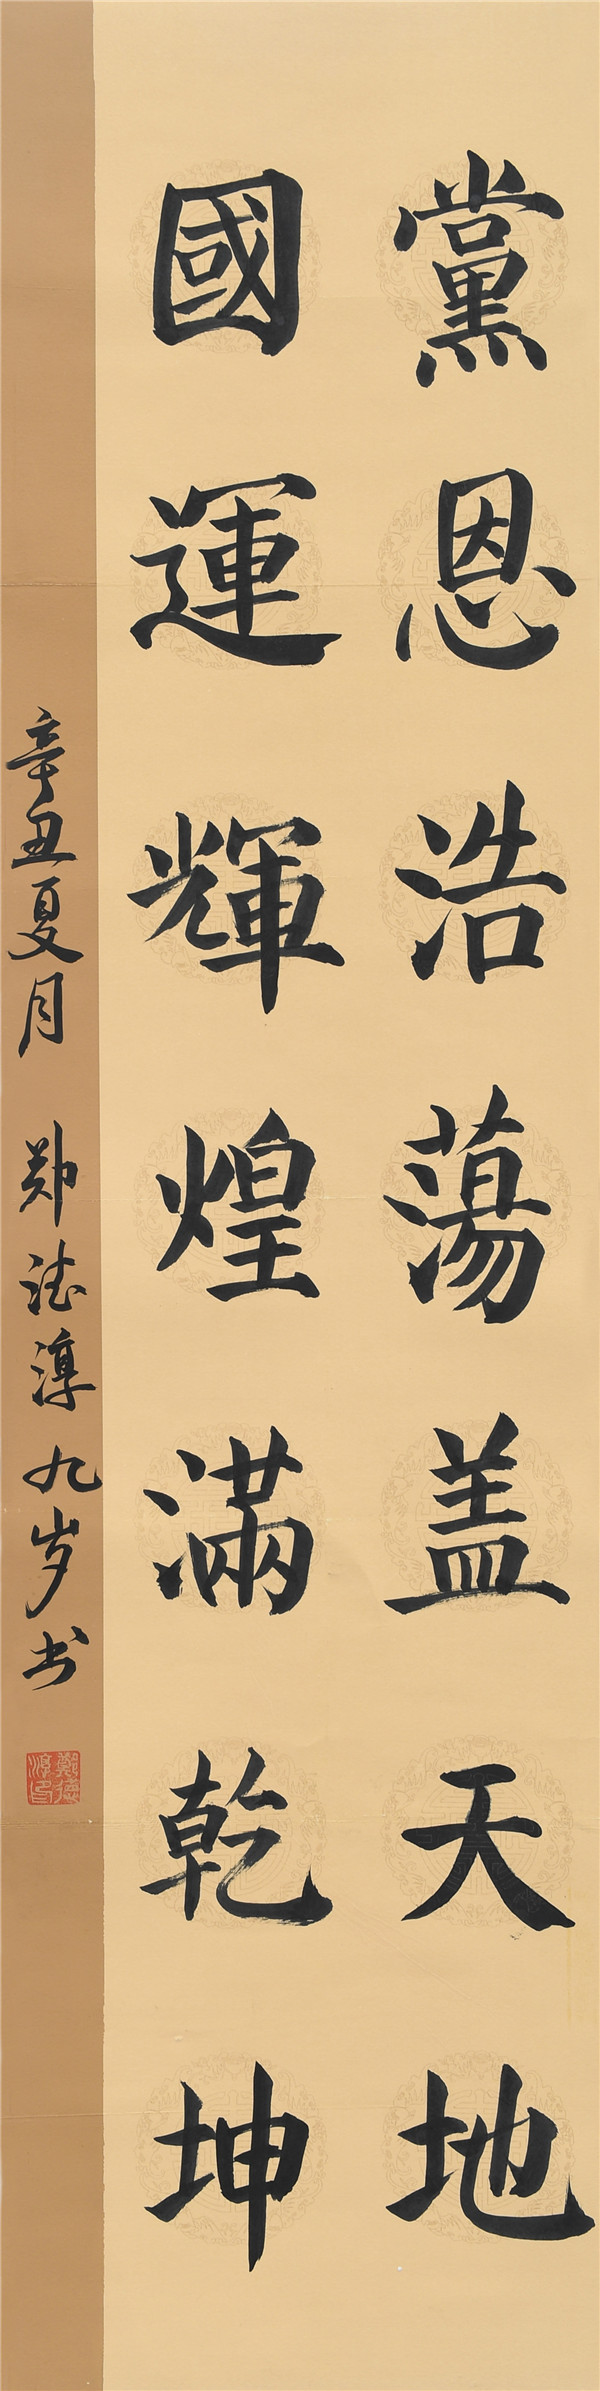 黨恩浩蕩盖天地
國運輝煌滿乾坤
辛丑夏月 郑德淳九岁书
鄭德淳印